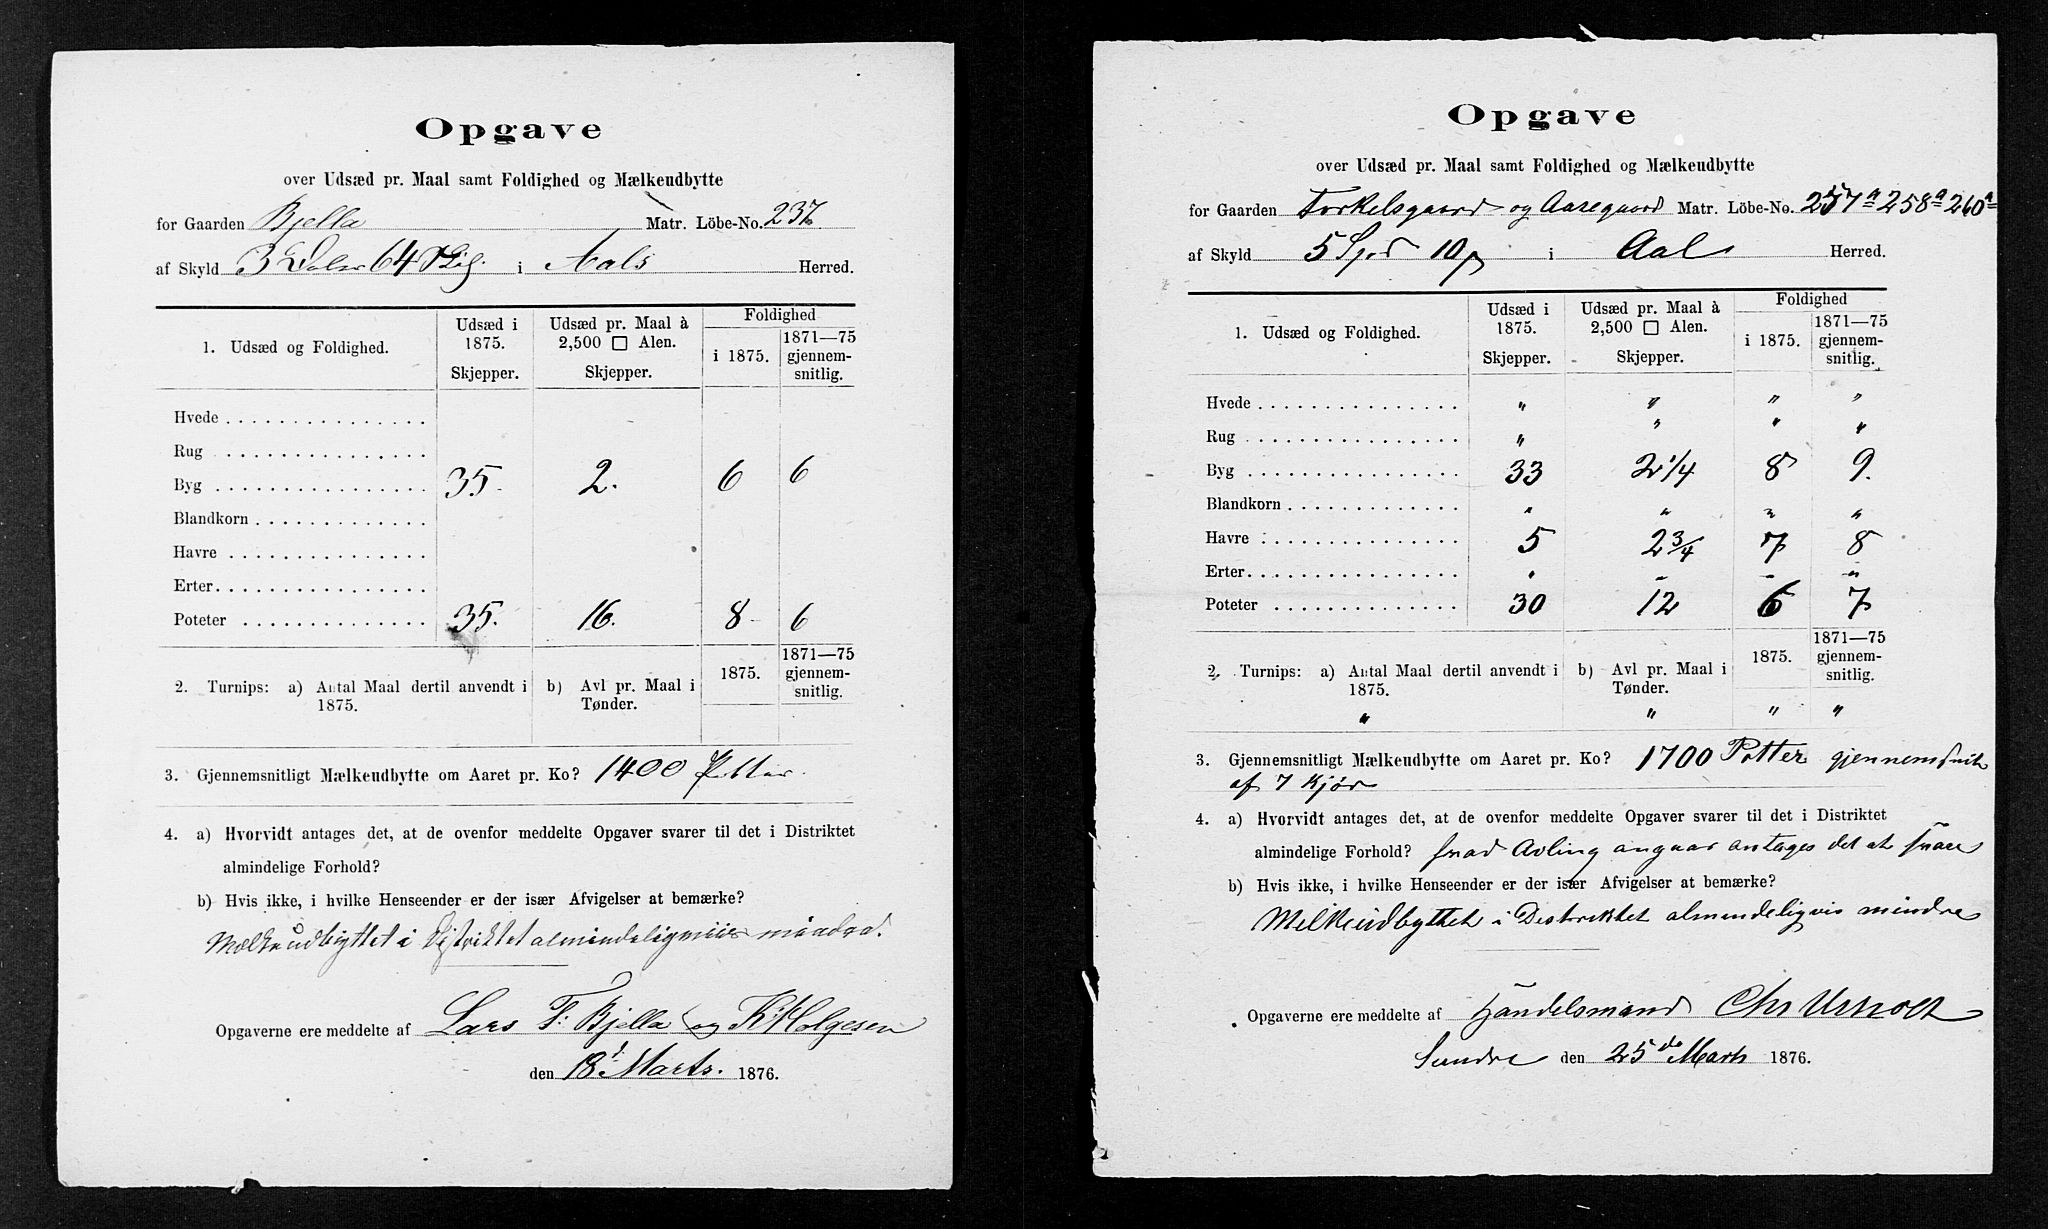 Opgave
over Udsæd pr. Maal samt Foldighed og Mælkeudbytte
for Gaarden Bjella Matr. Löbe-No. 237.
af Skyld 3 Daler 64 Skil. i Aals Herred.
1. Udsæd og Foldighed. Udsæd i 1875. Skjepper. Udsæd pr. Maal à 2,500 □ Alen. Skjepper. Foldighed i 1875. 1871—75 gjennemsnitlig.
Hvede
Rug
Byg 35. 2. 6 6
Blandkorn
Havre
Erter
Poteter 35. 16. 8 6
2. Turnips: a) Antal Maal dertil anvendt i 1875. b) Avl pr. Maal i Tønder. 1875. 1871—75 gjennemsnitlig.
3. Gjennemsnitligt Mælkeudbytte om Aaret pr. Ko? 1400 Potter.
4. a) Hvorvidt antages det, at de ovenfor meddelte Opgaver svarer til det i Distriktet
almindelige Forhold?
b) Hvis ikke, i hvilke Henseender er der især Afvigelser at bemærke?
Mælkeudbyttet i Distriktet almindeligviis mindre.
Opgaverne ere meddelte af Lars T: Bjella og K Holgesen
den 18 Marts. 1876.
Opgave
over Udsæd pr. Maal samt Foldighed og Mælkeudbytte
for Gaarden Torkelsgaard og Aaregaard Matr. Löbe-No. 257a 258a 260a
af Skyld 5 Spd 10 i Aal Herred.
1. Udsæd og Foldighed. Udsæd i 1875. Skjepper. Udsæd pr. Maal à 2,500 □ Alen. Skjepper. Foldighed i 1875. 1871—75 gjennemsnitlig.
Hvede " " " "
Rug " " " "
Byg 33 2 1/4 8 9.
Blandkorn " " " "
Havre 5 2 3/4 7 8
Erter " " " "
Poteter 30 12 6 7
2. Turnips: a) Antal Maal dertil anvendt i 1875. b) Avl pr. Maal i Tønder. 1875. 1871—75 gjennemsnitlig.
" " " "
3. Gjennemsnitligt Mælkeudbytte om Aaret pr. Ko? 1700 Potter gjennemsnit
af 7 Kjør
4. a) Hvorvidt antages det, at de ovenfor meddelte Opgaver svarer til det i Distriktet
almindelige Forhold? hvad Avling angaar antages det at svare
b) Hvis ikke, i hvilke Henseender er der især Afvigelser at bemærke?
Melkeudbyttet i Destriktet almindeligvis mindre
Opgaverne ere meddelte af Handelsmand Chr
Sundre den 25de Marts 1876.